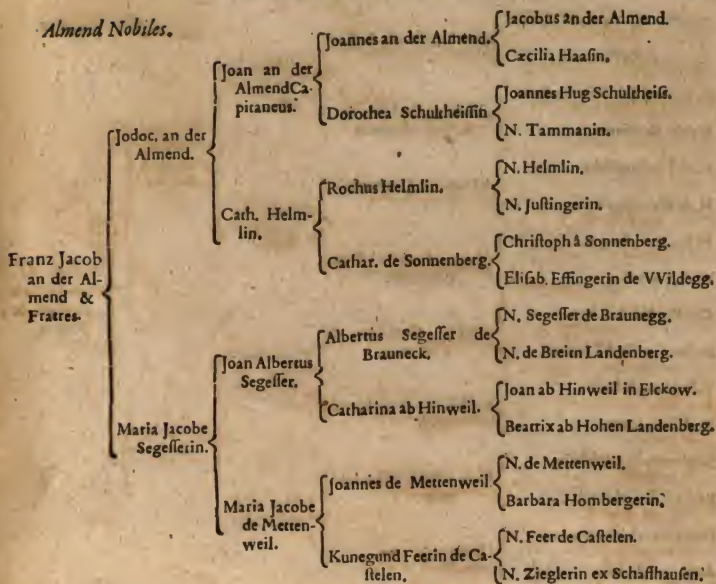 Almend Nobiles.
Franz Jacob
an der Al-
mend &
Fratres.
Jodoc. an der
Almend.
Maria Jacobe
Segesserin.
Joan an der
Almend Ca-
pitaneus.
Cath. Helm-
lin.
Joan Albertus
Segesser.
Maria Jacobe
de Metten-
weil.
Joannes an der Almend.
Dorothea Schultheissin
Rochus Helmlin.
Cathar. de Sonnenberg.
Albertus Segesser de
Brauneck.
Catharina ab Hinweil.
Joannes de Mettenweil
Kunegund Feerin de Ca-
stelen.
Jacobus an der Almend.
Cæcilia Haasin.
Joannes Hug Schultheiss.
N. Tammanin.
N. Helmlin.
N. Justingerin.
Christoph â Sonnenberg.
Elisab. Effingerin de VVildegg.
N. Segesser de Braunegg.
N. de Breitn Landenberg.
Joan ab Hinweil in Elckow.
Beatrix ab Hohen Landenberg.
N. de Mettenweil.
Barbara Hombergerin.
N. Feer de Castelen.
N. Zieglerin ex Schaffhausen.